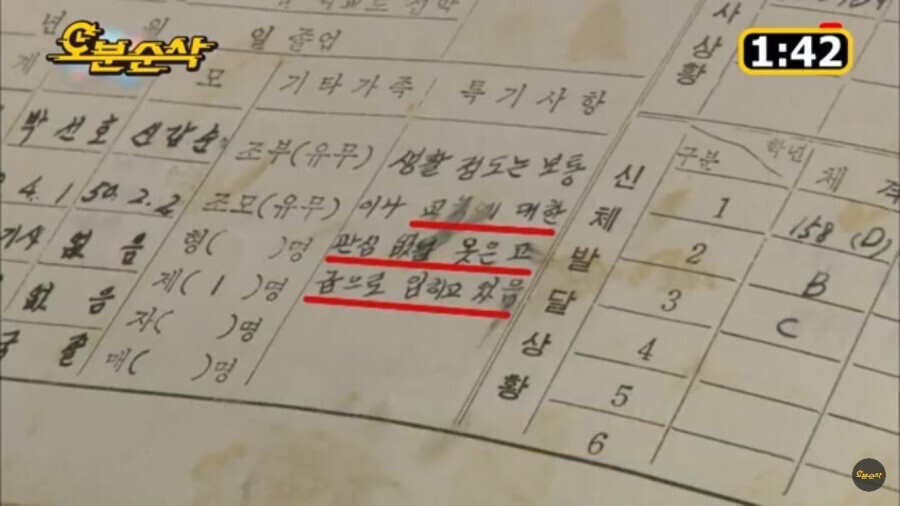 오분순삭
1:42
년 월
일 졸업
사
상
황
계
모
기타가족
특기사항
박선호
신갑순
4.1
50.2.2
없음
없음
국졸
조부(유무)
조모(유무)
형( )명
제( 1 )명
자( )명
매( )명
생활 정도는 보통
이나 대한
관심 없남 옷은 고
급으로 입히고 있음
신
체
발
달
상
황
구분
학년
체격
1
158 (D)
2
B
3
C
4
5
6
오분순삭